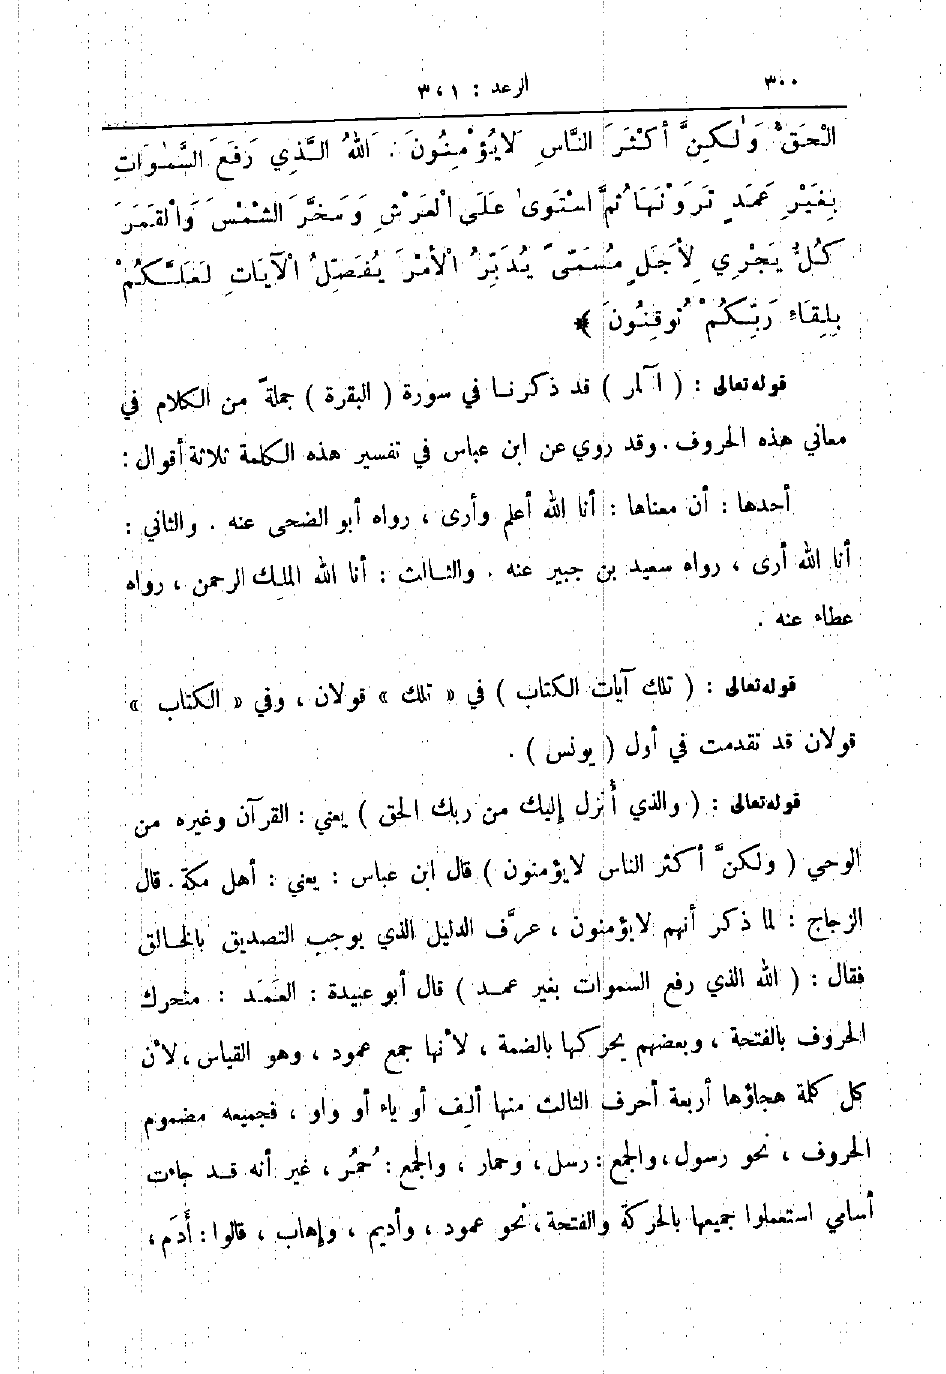 ٣٠٠ الرعد : ٣،١
الْحَقُّ وَلٰكِنَّ أَكْثَرَ النَّاسِ لَايُؤْمِنُونَ . اَللهُ الَّذِي رَفَعَ السَّمٰوَاتِ
بِغَيْرِ عَمَدٍ تَرَوْنَهَا ثُمَّ اسْتَوىٰ عَلَى الْعَرْشِ وَسَخَّرَ الشَّمْسَ وَالْقَمَرَ
كُلٌّ يَجْرِي لِأَجَلٍ مُسَمّىً يُدَبِّرُ الْأَمْرَ يُفَصِّلُ الْآيَاتِ لَعَلَّكُمْ
بِلِقَاءِ رَبِّكُمْ تُوقِنُونَ ﴾
قوله تعالى : ( آلمر ) قد ذكرنا في سورة ( البقرة ) جملةً من الكلام في
معاني هذه الحروف . وقد روي عن ابن عباس في تفسير هذه الكلمة ثلاثة أقوال :
أحدها : أن معناها : أنا الله أعلم وأرى ، رواه أبو الضحى عنه . والثاني :
أنا الله أرى ، رواه سعيد بن جبير عنه . والثالث : أنا الله الملك الرحمن ، رواه
عطاء عنه .
قوله تعالى : ( تلك آيات الكتاب ) في « تلك » قولان ، وفي « الكتاب »
قولان قد تقدمت في أول ( يونس ) .
قوله تعالى : ( والذي أُنزل إليك من ربك الحق ) يعني : القرآن وغيره من
الوحي ( ولكنَّ أكثر الناس لايؤمنون ) قال ابن عباس : يعني : أهل مكة . قال
الزجاج : لما ذكر أنهم لايؤمنون ، عرَّف الدليل الذي يوجب التصديق بالخالق
فقال : ( الله الذي رفع السموات بغير عمد ) قال أبو عبيدة : العَمَد : متحرك
الحروف بالفتحة ، وبعضهم يحركها بالضمة ، لأنها جمع عمود ، وهو القياس ، لأن
كل كلمة هجاؤها أربعة أحرف الثالث منها ألِف أو ياء أو واو ، فجميعه مضموم
الحروف ، نحو رسول ، والجمع : رسل ، وحمار ، والجمع : حُمُر ، غير أنه قد جاءت
أسامي استعملوا جميعها بالحركة والفتحة ، نحو عمود ، وأديم ، وإهاب ، قالوا : أَدَم ،